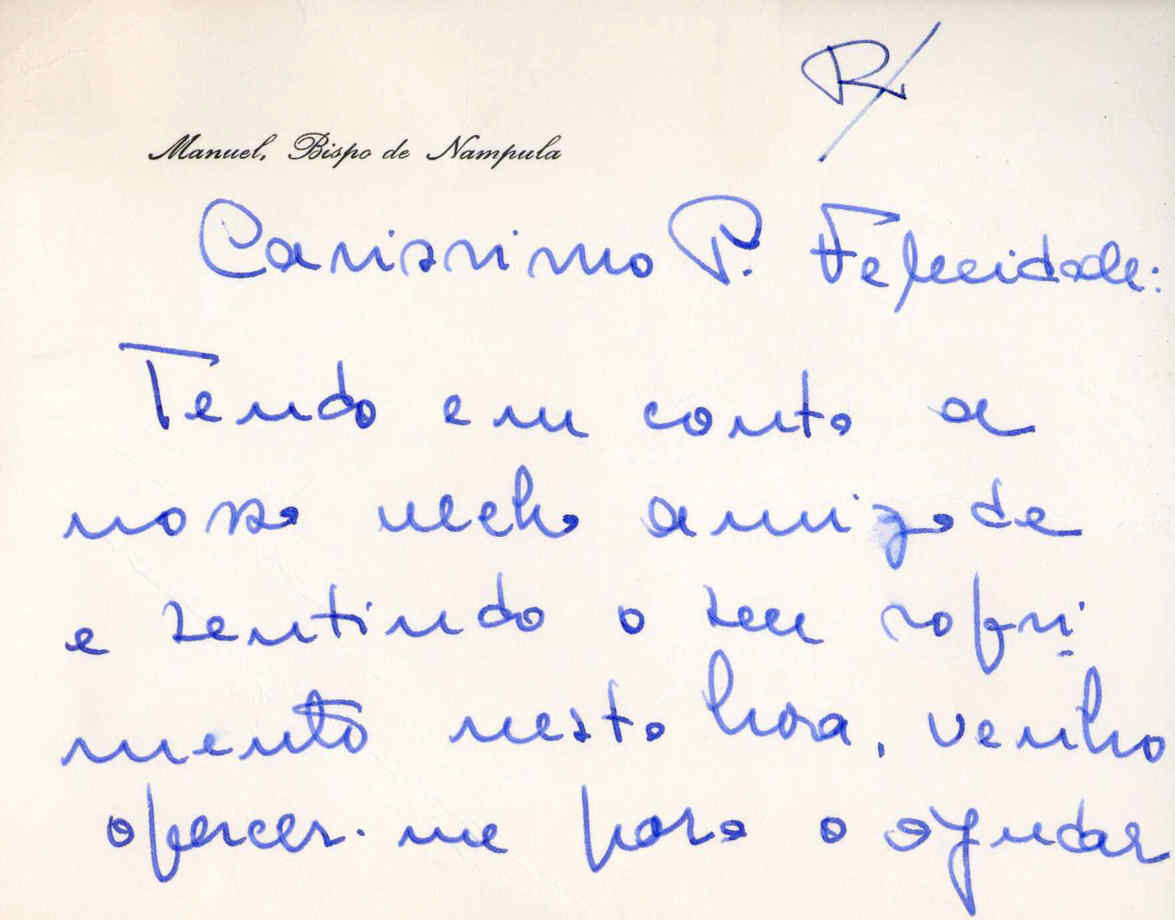 R/
Manuel, Bispo de Nampula
Carissimo P. Felicidade:
Tendo em conta a
nossa velha amizade
e sentindo o seu sofri-
mento nesta hora, venho
oferecer-me para o ajudar